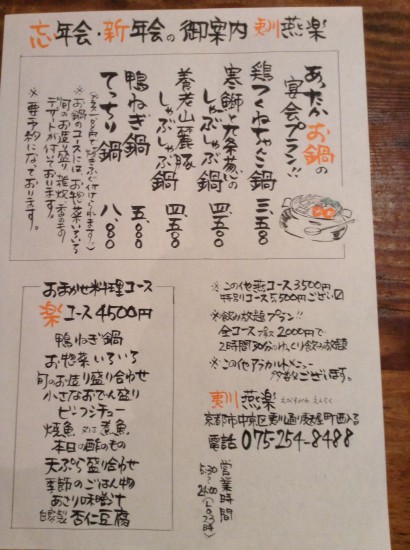 忘年会・新年会の御案内 夷川燕楽
あったかお鍋の
宴会プラン!!
鶏つくねちゃんこ鍋 三、五〇〇
寒鰤と九条葱の
しゃぶしゃぶ鍋 四、五〇〇
養老山麓豚
しゃぶしゃぶ鍋 四、五〇〇
鴨ねぎ鍋 五、〇〇〇
てっちり鍋 八、〇〇〇
※お鍋のコースには、お惣菜いろいろ
旬のお造り盛り 雑炊 香のもの
デザートが付いております。
※要予約になっております。
おまかせ料理コース
楽コース 4500円
鴨ねぎ鍋
お惣菜いろいろ
旬のお造り盛り合わせ
小さなおでん盛り
ビーフシチュー
焼魚 又は 煮魚
本日の酢のもの
天ぷら盛り合わせ
季節のごはん物
あさり味噌汁
自家製 杏仁豆腐
※この他燕コース3500円
特別コース5,500円ござい〼
※飲み放題プラン!!
全コースプラス2000円で
2時間30分ゆっくり飲み放題
※この他アラカルトメニュー
多数ございます。
夷川 燕楽 えびすがわ えんらく
京都市中京区夷川通り麩屋町西入る
電話 075-254-8488
営業時間
5:30~24:00(L.O 23時)